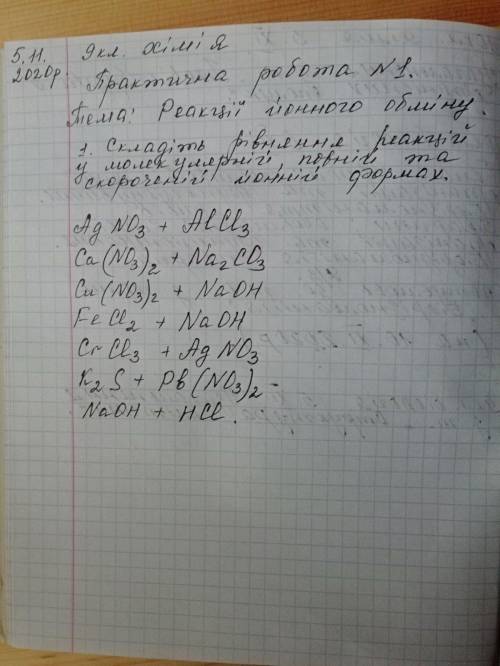 5.11. 9 кл. хімія
2020р.
Практична робота N1.
Тема: Реакції йонного обміну.
1. Складіть рівняння реакцій
у молекулярній, повній та
скороченій йонній формах.
AgNO₃ + AlCl₃
Ca(NO₃)₂ + Na₂CO₃
Cu(NO₃)₂ + NaOH
FeCl₂ + NaOH
CrCl₃ + AgNO₃
K₂S + Pb(NO₃)₂ -
NaOH + HCl.